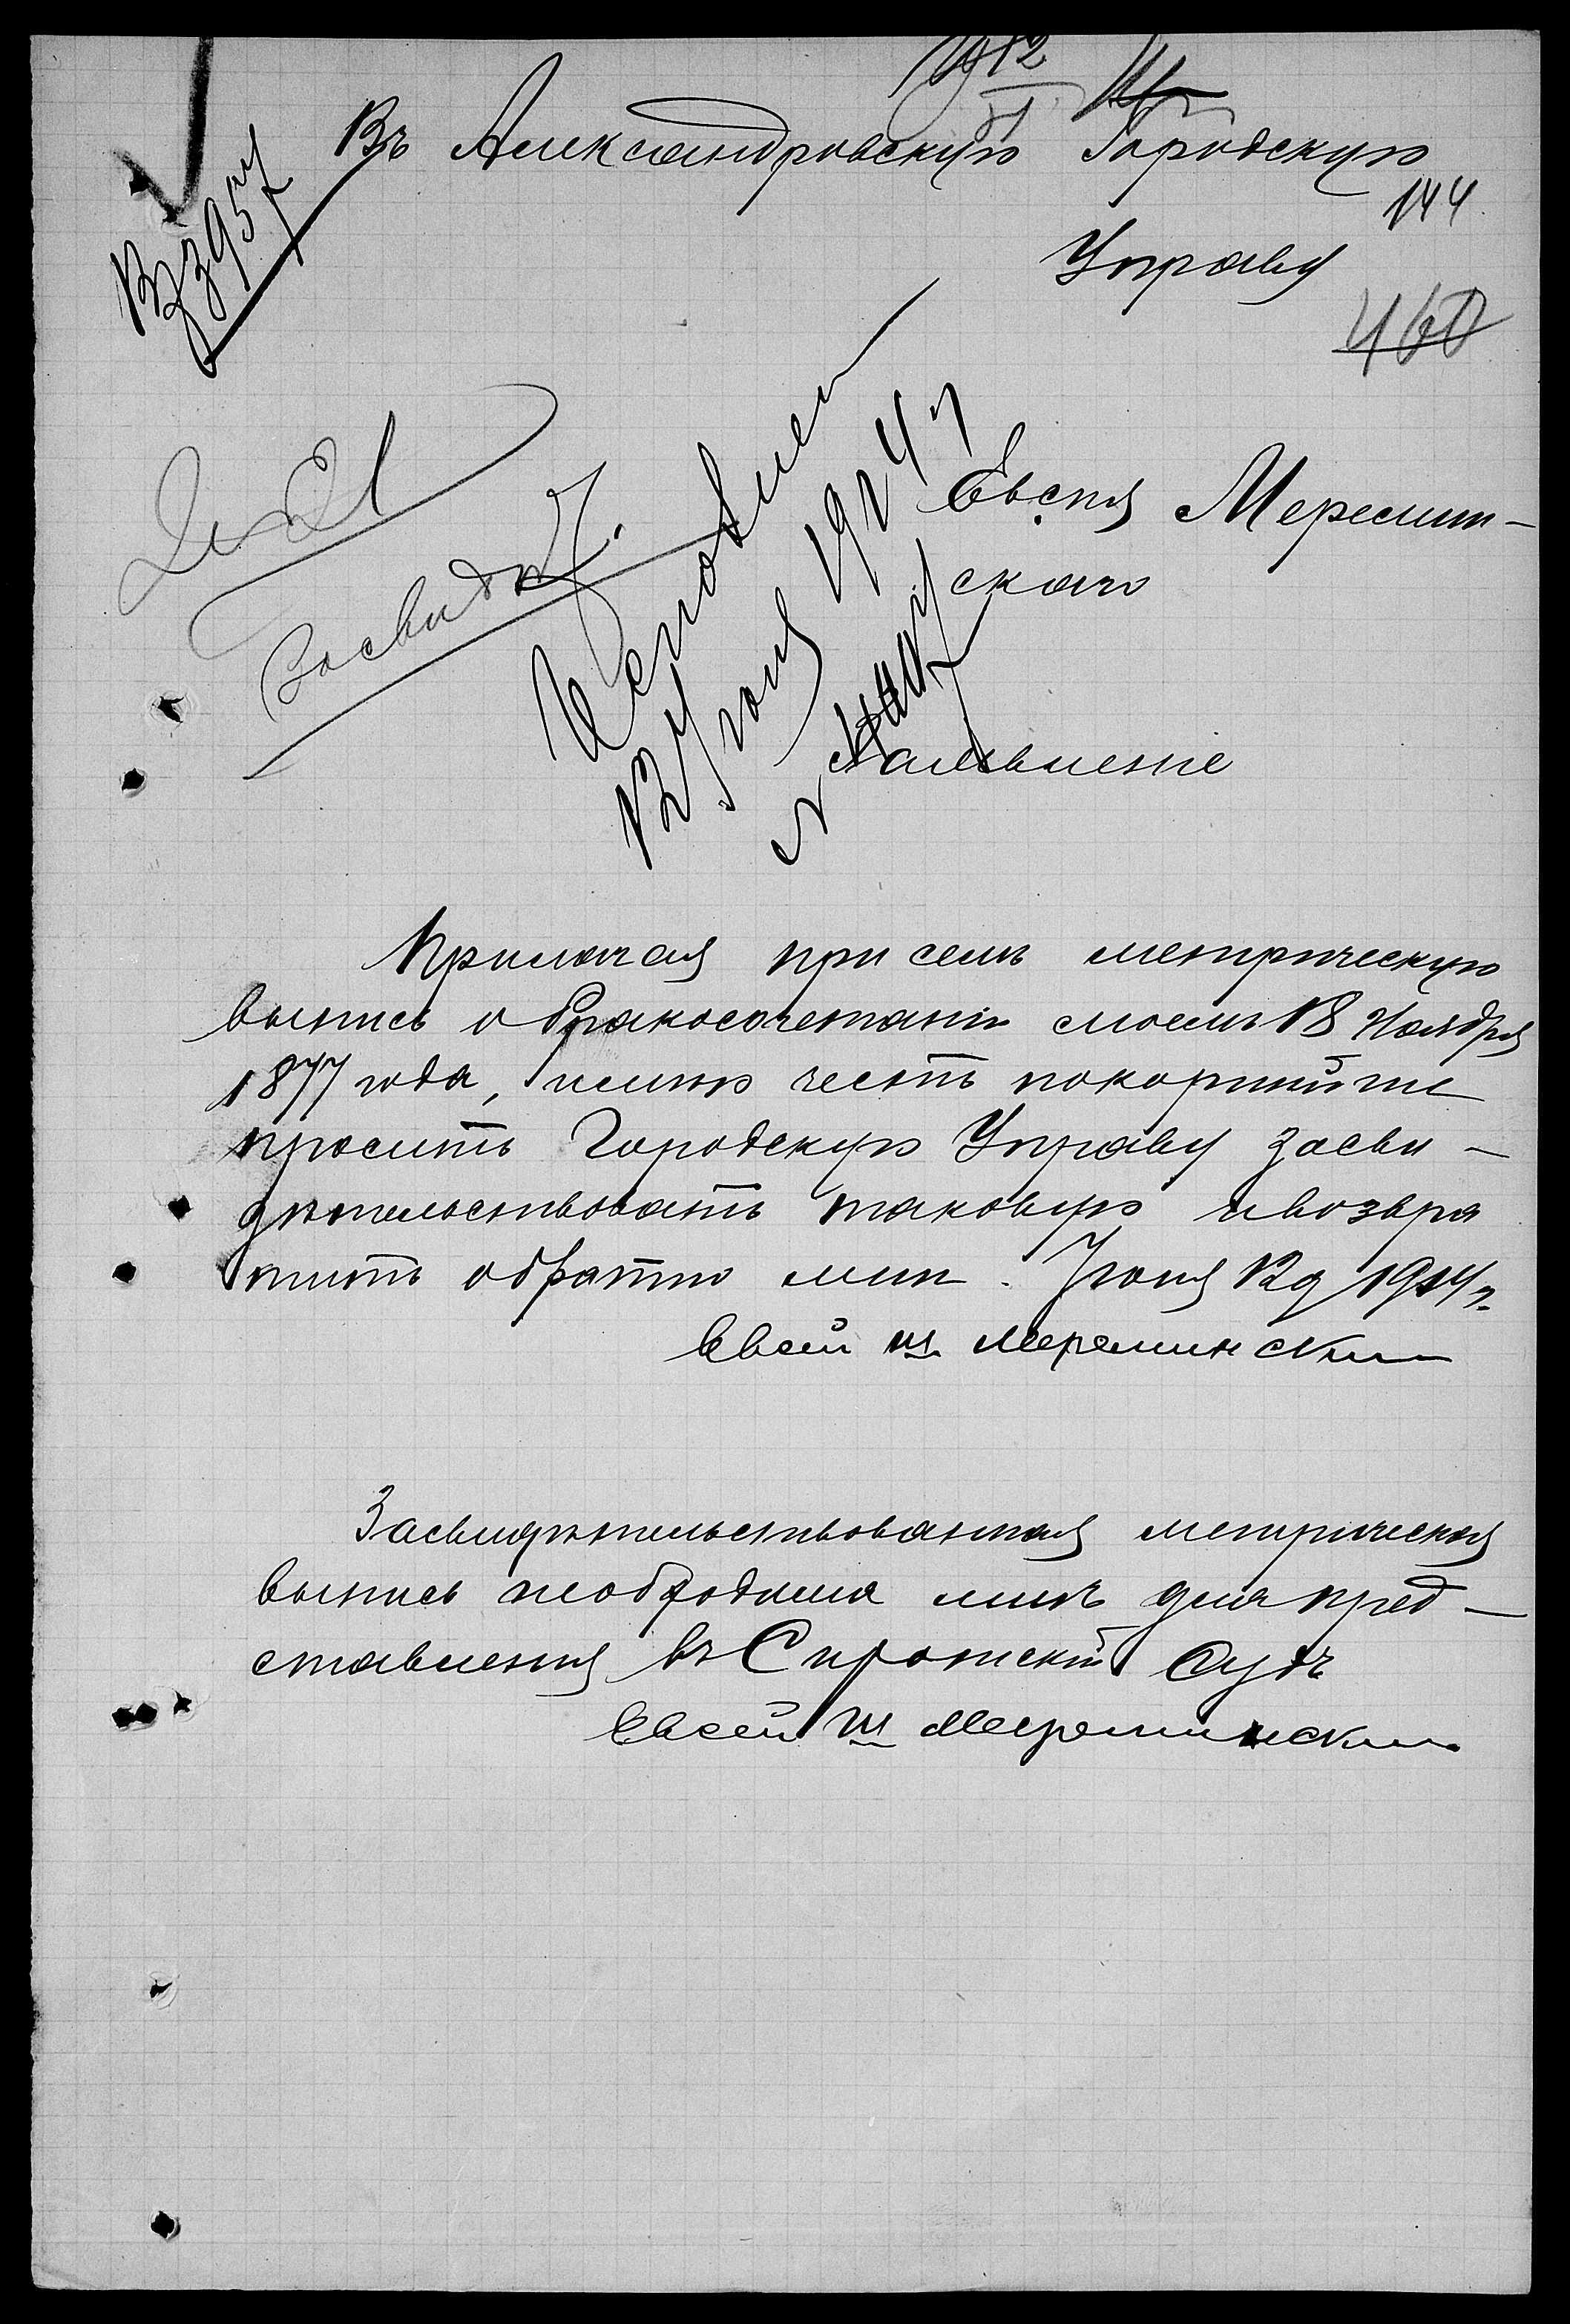 Въ Александровскую Городскую
144
Управу
460
Вх 3957
Засвид.
Исполнен
12 Iюня 1914 г
Евсея Меремин-
скаго
Заявленіе
Прилагая при семъ метрическую
выпись о бракосочетаніи моемъ 18 Ноября
1877 года, имѣю честь покорнѣйше
просить Городскую Управу засви-
дѣтельствовать таковую и возвра
тить обратно мнѣ. Iюня 12 д 1914 г.
Евсей Ш Мереминский
Засвидѣтельствованная метрическая
выпись необходима мнѣ для пред-
ставленія въ Сиротскій Судъ
Евсей Ш Мереминский